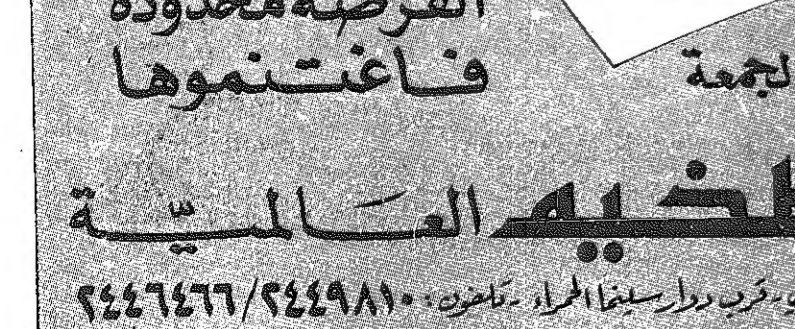 الفرصة محدودة
لجمعة فاغتنموها
لخيم العالمية
قرب دوار سينما الحمراء - تلفون: ٢٤٤٩٨١٠ / ٢٤٤٦٤٦٦